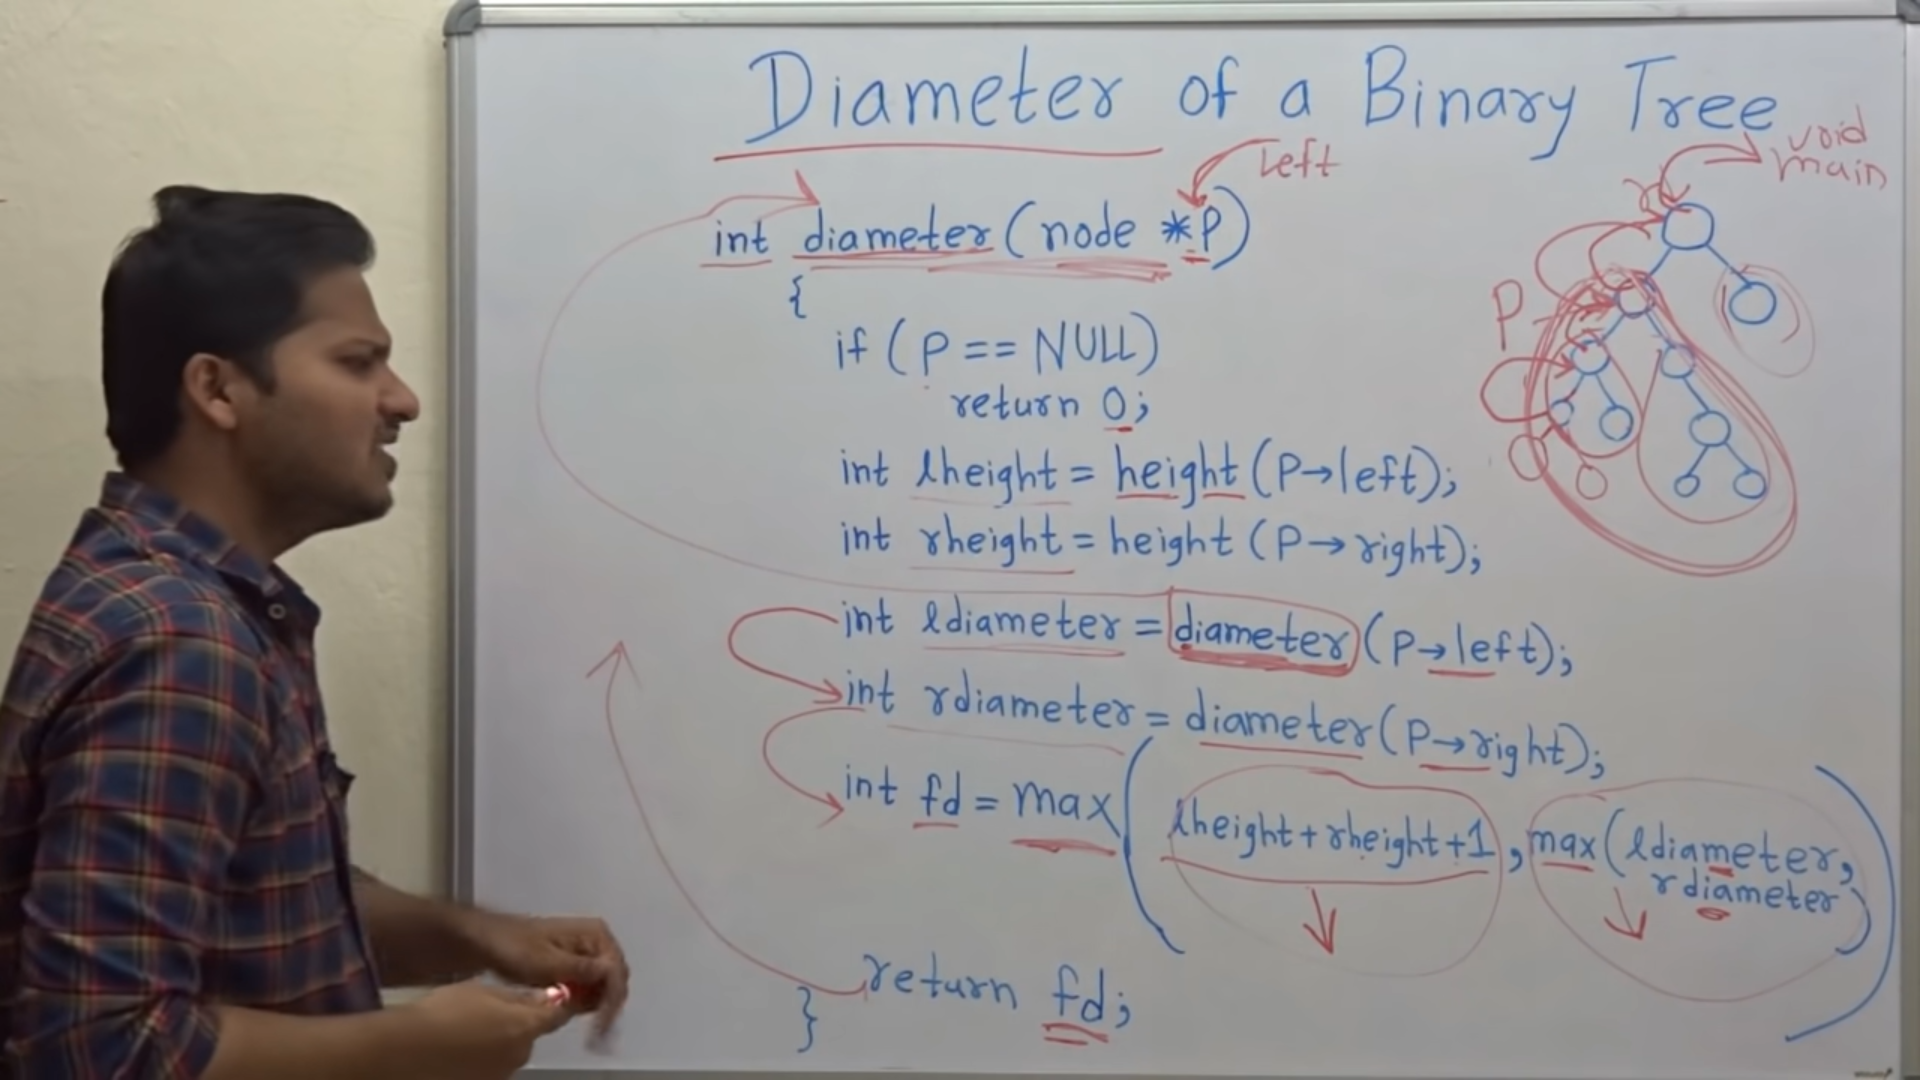 Diameter of a Binary Tree
void
main
left
int diameter (node *P)
{
if (P == NULL)
return 0;
int lheight = height (P→left);
int rheight = height (P→right);
int ldiameter = diameter (P→left);
int rdiameter = diameter (P→right);
int fd = max ( lheight + rheight +1 , max (ldiameter,
rdiameter) )
return fd;
}
P